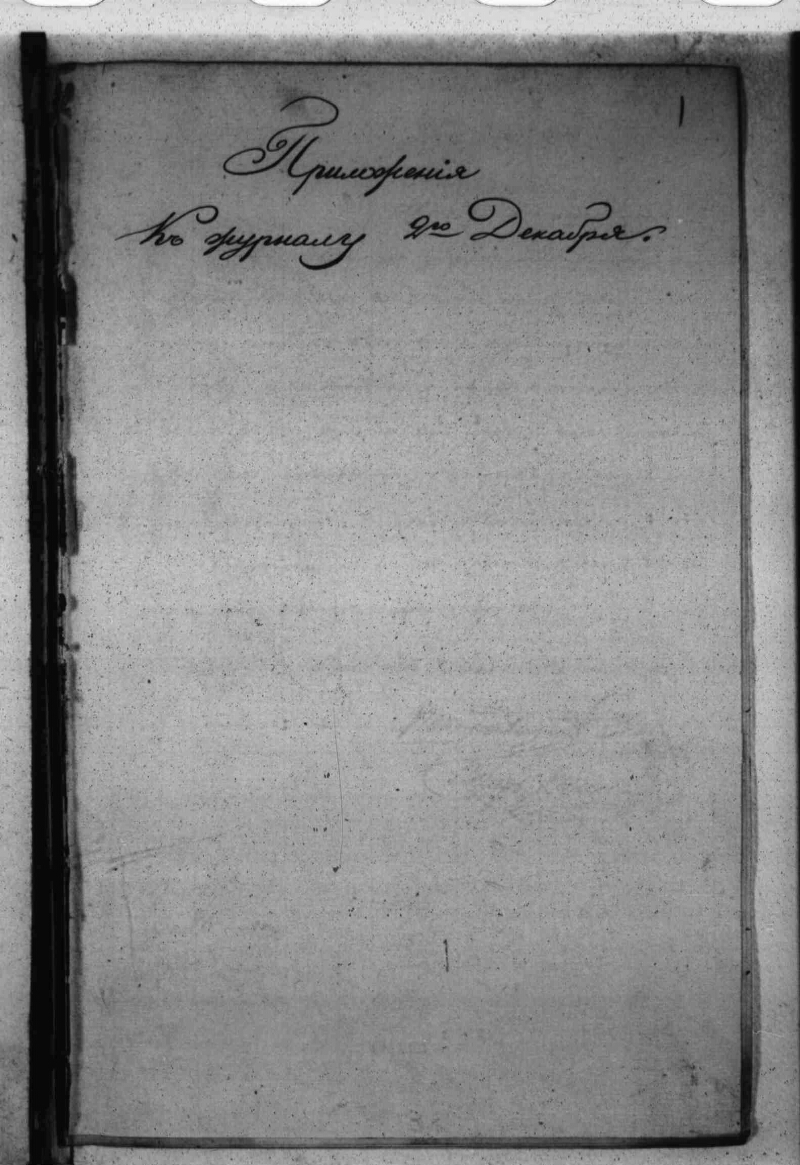 1
Приложенія
къ журналу 2го Декабря.